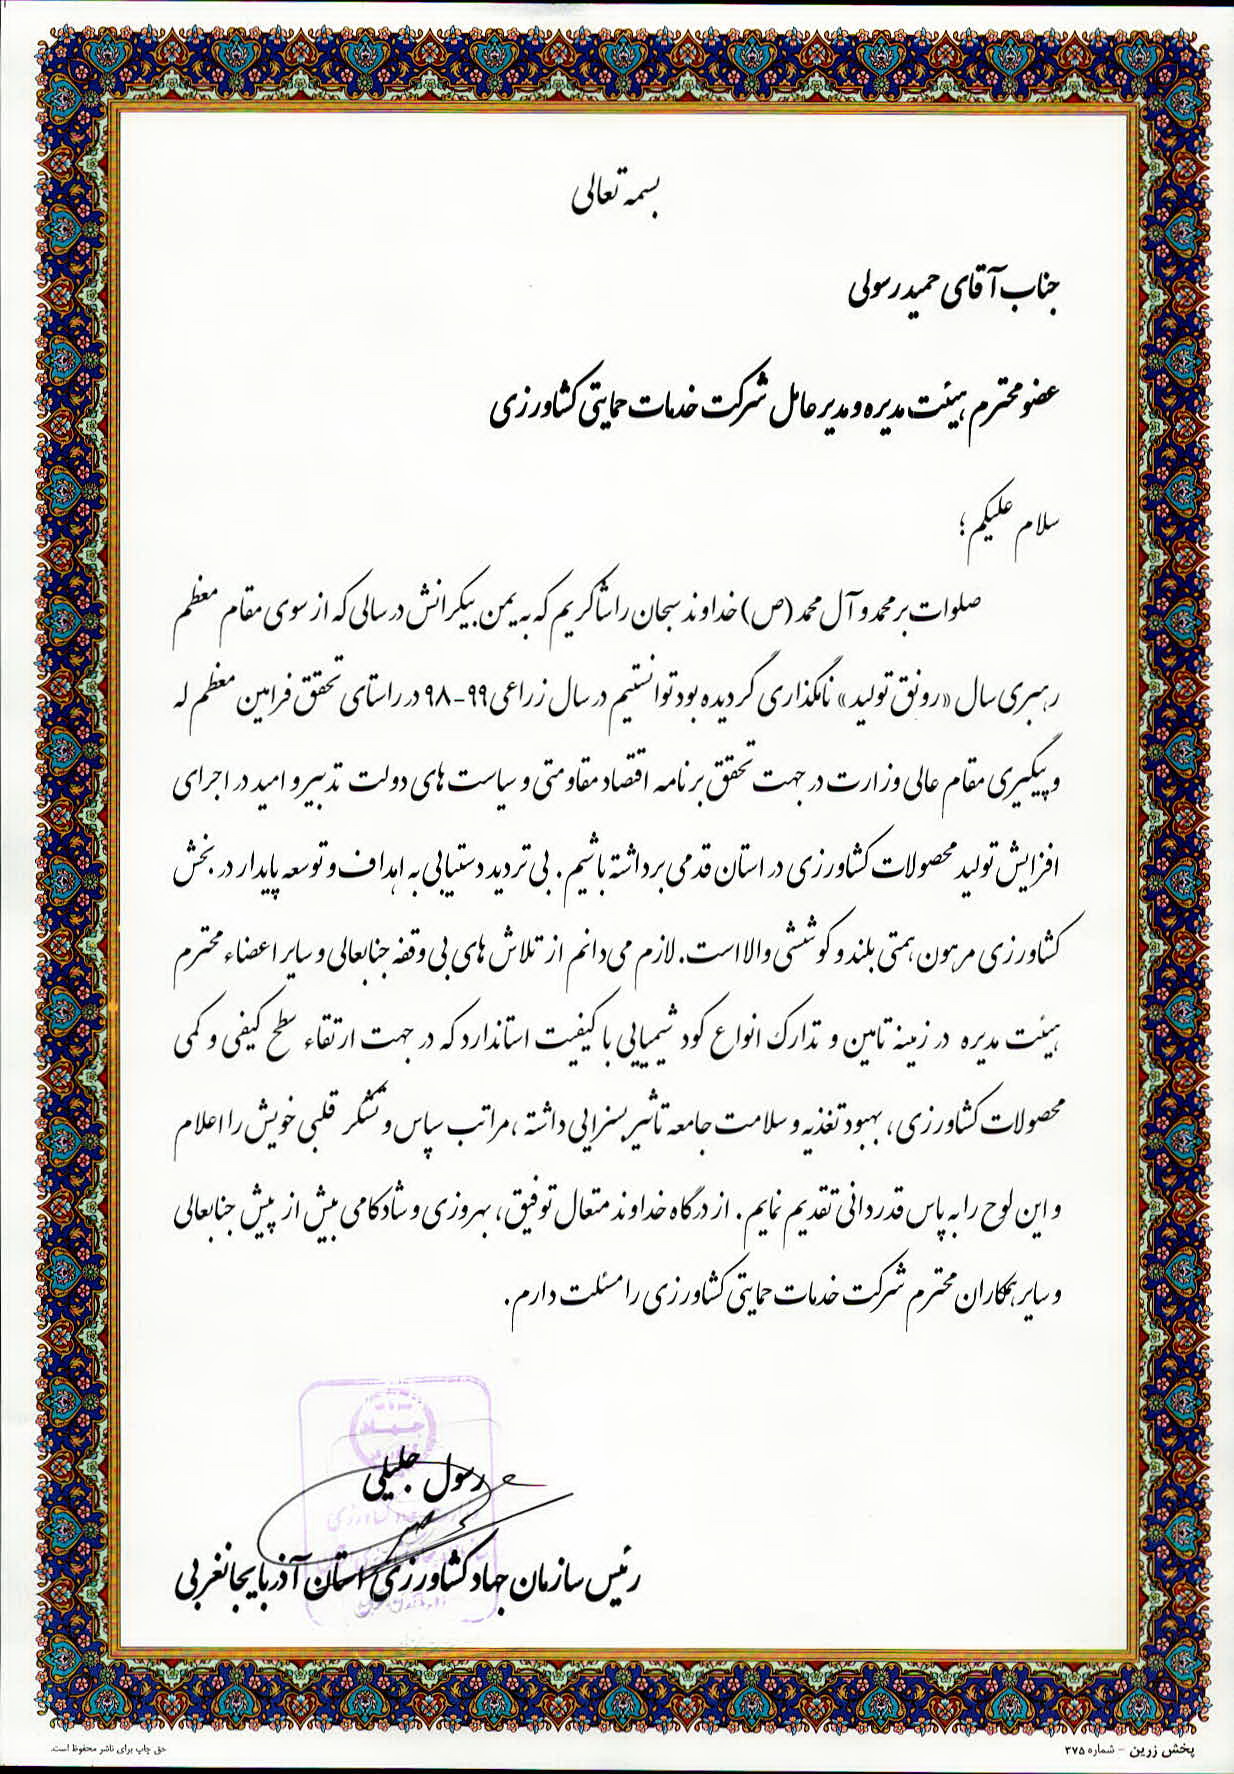 بسمه تعالی
جناب آقای حمید رسولی
عضو محترم هیئت مدیره و مدیر عامل شرکت خدمات حمایتی کشاورزی
سلام علیکم ؛
صلوات بر محمد و آل محمد (ص) خداوند سبحان را شاکریم که به یمن بیکرانش در سالی که از سوی مقام معظم
رهبری سال «رونق تولید» نامگذاری گردیده بود توانستیم در سال زراعی ۹۹-۹۸ در راستای تحقق فرامین معظم له
و پیگیری مقام عالی وزارت در جهت تحقق برنامه اقتصاد مقاومتی و سیاست های دولت تدبیر و امید در اجرای
افزایش تولید محصولات کشاورزی در استان قدمی برداشته باشیم . بی تردید دستیابی به اهداف و توسعه پایدار در بخش
کشاورزی مرهون همتی بلند و کوششی والا است. لازم می دانم از تلاش های بی وقفه جنابعالی و سایر اعضاء محترم
هیئت مدیره در زمینه تامین و تدارک انواع کود شیمیایی با کیفیت استاندارد که در جهت ارتقاء سطح کیفی و کمی
محصولات کشاورزی ، بهبود تغذیه و سلامت جامعه تاثیر بسزایی داشته ، مراتب سپاس و تشکر قلبی خویش را اعلام
و این لوح را به پاس قدردانی تقدیم نمایم . از درگاه خداوند متعال توفیق ، بهروزی و شادکامی بیش از پیش جنابعالی
و سایر همکاران محترم شرکت خدمات حمایتی کشاورزی را مسئلت دارم .
رسول جلیلی
رئیس سازمان جهاد کشاورزی استان آذربایجانغربی
پخش زرین - شماره ۳۷۵
حق چاپ برای ناشر محفوظ است.